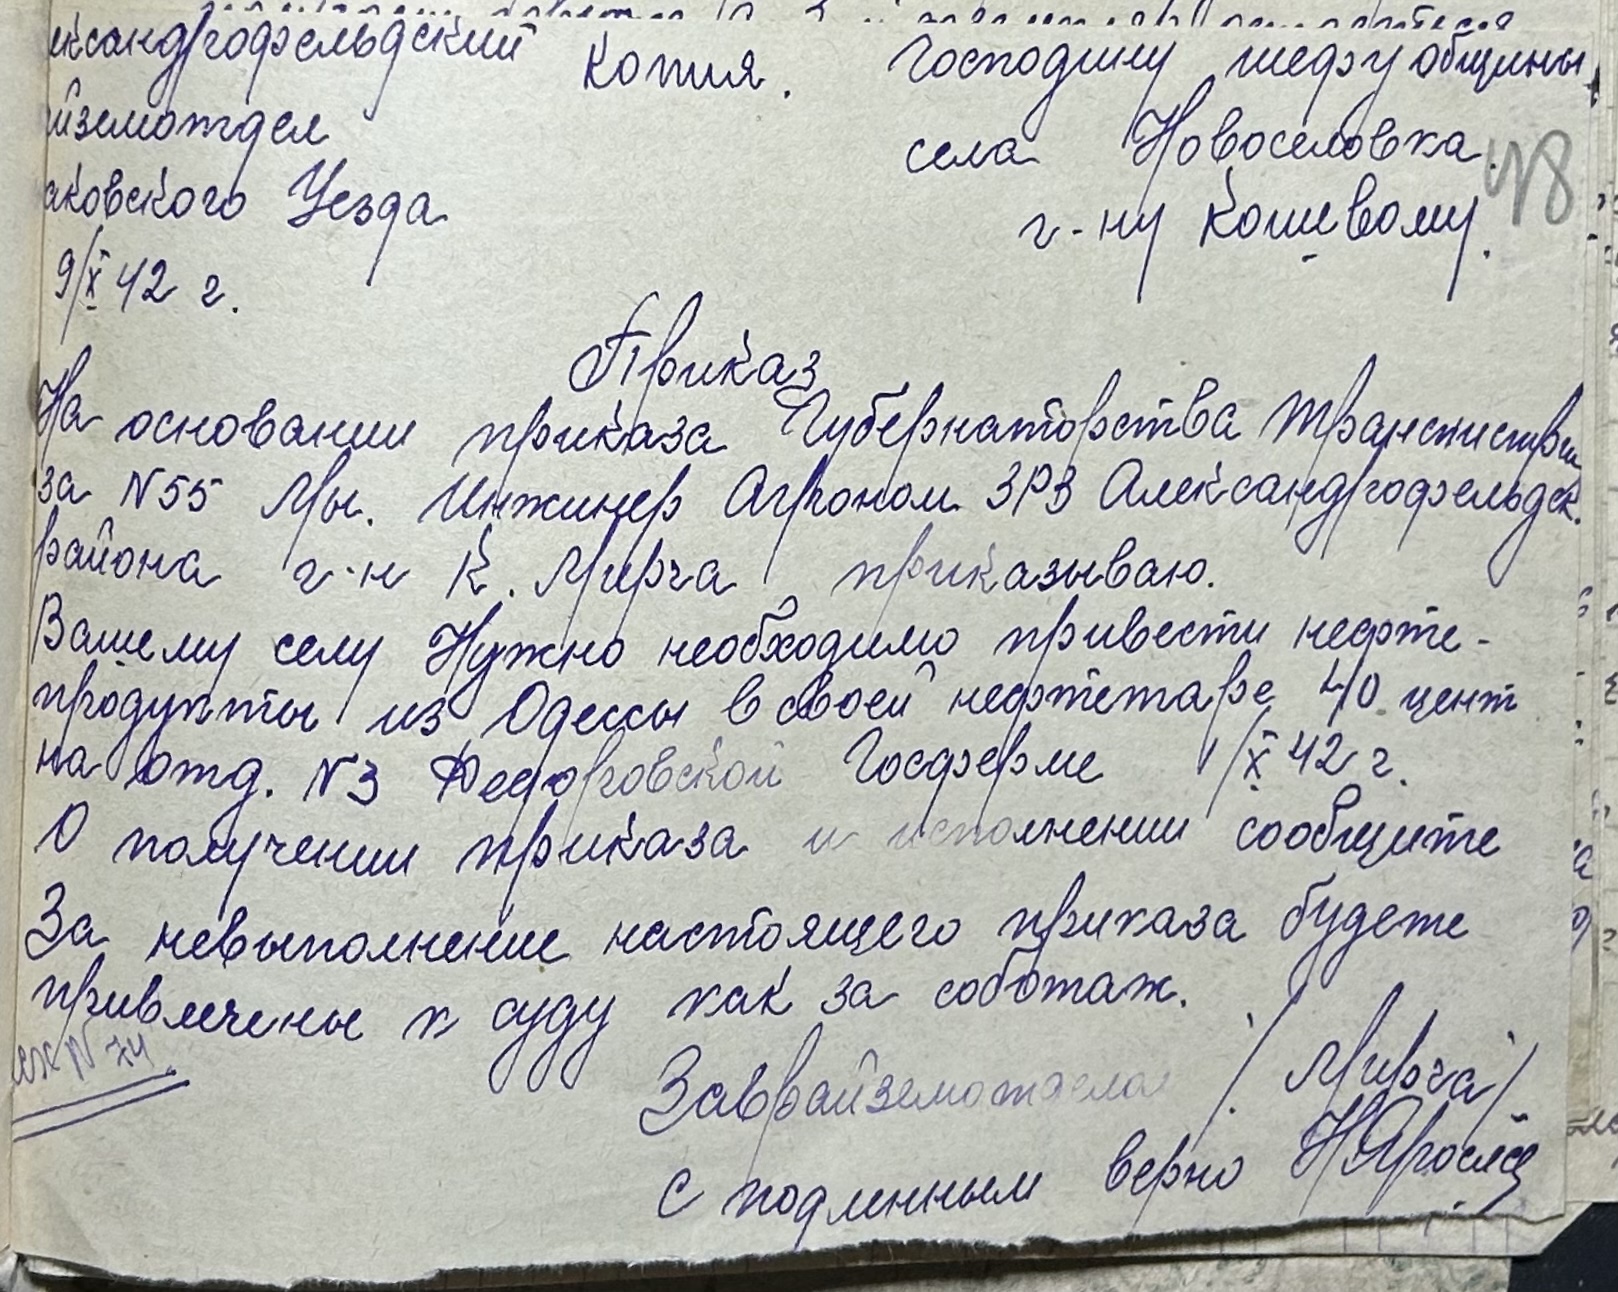 ександрофельдский Копия. Господину шефу общины
йземотдел села Новоселовка.
аковского Уезда г-ну Кошевому.
48
9/X 42 г.
Приказ
На основании приказа Губернаторства Транснистрии
за N55 Мы. Инжинер Агроном ЗРЗ Александрофельдск.
района г-н К. Мирча приказываю.
Вашему селу Нужно необходимо привести нефте-
продукты из Одессы в своей нефтетаре 40 цент
на отд. N3 Федоровской Госферме 1/X 42 г.
О получении приказа и исполнении сообщите
За невыполнение настоящего приказа будете
привлечены к суду как за соботаж.
N 74
Заврайземотдела /Мирча/
С подлинным верно